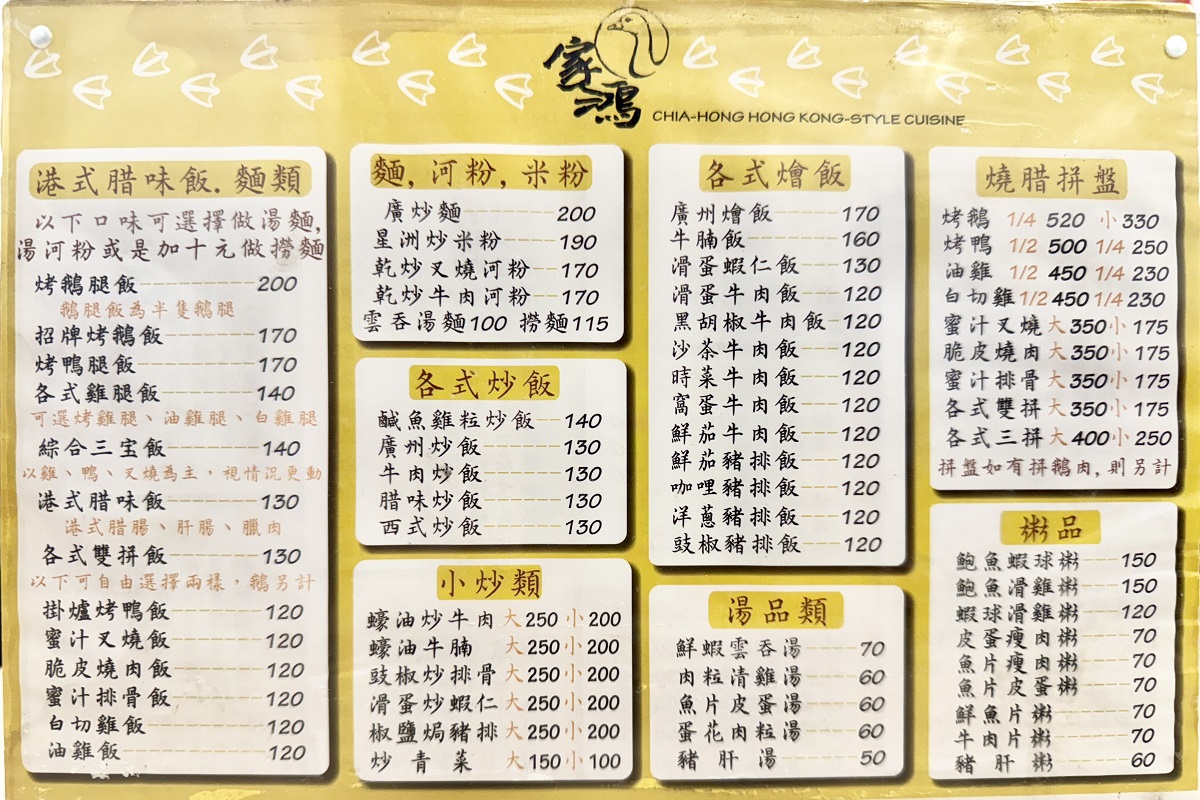 家鴻
CHIA-HONG HONG KONG-STYLE CUISINE
港式腊味飯.麵類
以下口味可選擇做湯麵,
湯河粉或是加十元做撈麵
烤鵝腿飯 200
鵝腿飯為半隻鵝腿
招牌烤鵝飯 170
烤鴨腿飯 170
各式雞腿飯 140
可選烤雞腿、油雞腿、白雞腿
綜合三宝飯 140
以雞、鴨、叉燒為主,視情況更動
港式腊味飯 130
港式腊腸、肝腸、臘肉
各式雙拼飯 130
以下可自由選擇兩樣,鵝另計
掛爐烤鴨飯 120
蜜汁叉燒飯 120
脆皮燒肉飯 120
蜜汁排骨飯 120
白切雞飯 120
油雞飯 120
麵,河粉,米粉
廣炒麵 200
星洲炒米粉 190
乾炒叉燒河粉 170
乾炒牛肉河粉 170
雲吞湯麵100 撈麵115
各式炒飯
鹹魚雞粒炒飯 140
廣州炒飯 130
牛肉炒飯 130
腊味炒飯 130
西式炒飯 130
小炒類
蠔油炒牛肉 大250 小200
蠔油牛腩 大250 小200
豉椒炒排骨 大250 小200
滑蛋炒蝦仁 大250 小200
椒鹽焗豬排 大250 小200
炒青菜 大150 小100
各式燴飯
廣州燴飯 170
牛腩飯 160
滑蛋蝦仁飯 130
滑蛋牛肉飯 120
黑胡椒牛肉飯 120
沙茶牛肉飯 120
時菜牛肉飯 120
窩蛋牛肉飯 120
鮮茄牛肉飯 120
鮮茄豬排飯 120
咖哩豬排飯 120
洋蔥豬排飯 120
豉椒豬排飯 120
湯品類
鮮蝦雲吞湯 70
肉粒清雞湯 60
魚片皮蛋湯 60
蛋花肉粒湯 60
豬肝湯 50
燒腊拼盤
烤鵝 1/4 520 小330
烤鴨 1/2 500 1/4 250
油雞 1/2 450 1/4 230
白切雞 1/2 450 1/4 230
蜜汁叉燒 大350 小175
脆皮燒肉 大350 小175
蜜汁排骨 大350 小175
各式雙拼 大350 小175
各式三拼 大400 小250
拼盤如有拼鵝肉,則另計
粥品
鮑魚蝦球粥 150
鮑魚滑雞粥 150
蝦球滑雞粥 120
皮蛋瘦肉粥 70
魚片瘦肉粥 70
魚片皮蛋粥 70
鮮魚片粥 70
牛肉片粥 70
豬肝粥 60